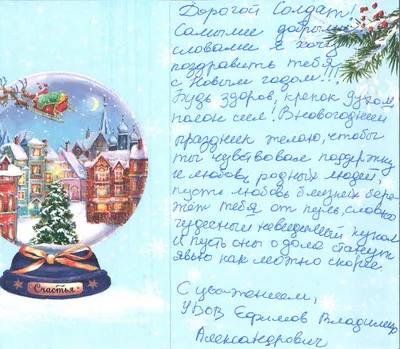 Дорогой Солдат!
Самыми добрыми
словами я хочу
поздравить тебя
с Новым годом!!!
Будь здоров, крепок духом,
полон сил! В новогодний
праздник желаю, чтобы
ты чувствовал поддержку
и любовь родных людей,
пусть любовь близких бере-
жет тебя от пуль, словно
чудесный невидимый купол
И пусть сны о доме станут
явью как можно скорее.
С уважением,
УВОВ Ефимов Владимир
Александрович
Счастья